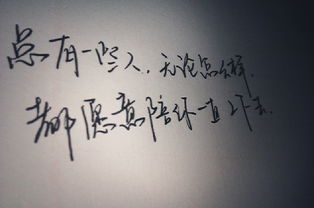 总有一些人,无论怎么样,
都愿意陪你一直下去.